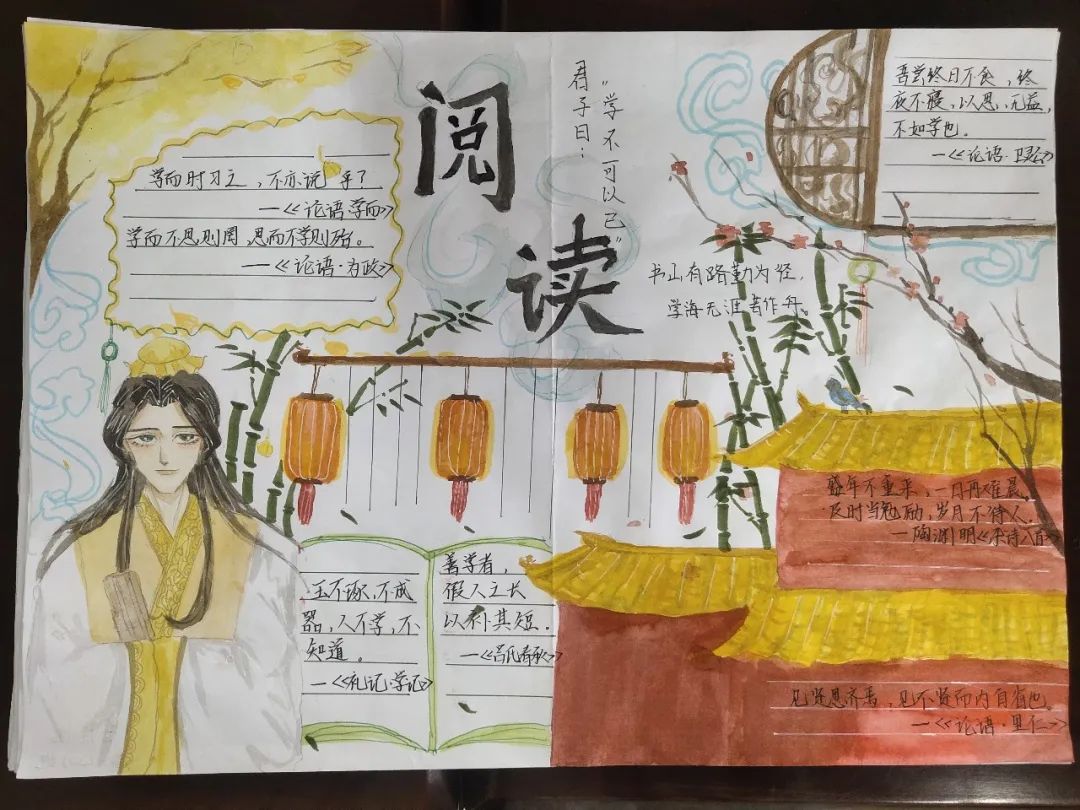 学而时习之，不亦说乎？
—《论语·学而》
学而不思则罔，思而不学则殆。
—《论语·为政》
阅
读
君子曰：
“学不可以已”
书山有路勤为径，
学海无涯苦作舟。
吾尝终日不食，终
夜不寝，以思，无益，
不如学也。
—《论语·卫灵公》
盛年不重来，一日再难晨。
及时当勉励，岁月不待人。
—陶渊明《杂诗八首》
玉不琢，不成
器，人不学，不
知道。
—《礼记·学记》
善学者，
假人之长
以补其短．
—《吕氏春秋》
见贤思齐焉，见不贤而内自省也。
—《论语·里仁》